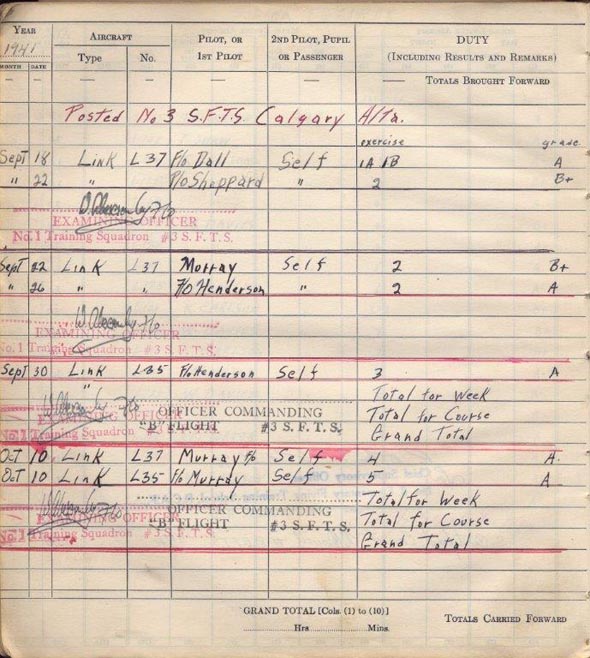 YEAR AIRCRAFT PILOT, OR 2ND PILOT, PUPIL DUTY
1941 Type No. 1ST PILOT OR PASSENGER (INCLUDING RESULTS AND REMARKS)
MONTH DATE
— — — — — — TOTALS BROUGHT FORWARD
Posted No 3 S.F.T.S. Calgary Alta.
exercise grade
Sept 18 LINK L37 F/o Dall Self 1A 1B A
" 22 " P/o Sheppard " 2 B+
EXAMINING OFFICER
No. 1 Training Squadron #3 S.F.T.S.
Sept 22 LINK L37 Murray Self 2 B+
" 26 " " F/O Henderson " 2 A
EXAMINING OFFICER
No. 1 Training Squadron #3 S.F.T.S.
Sept 30 LINK L35 F/o Henderson Self 3 A
" Total for Week
EXAMINING OFFICER OFFICER COMMANDING Total for Course
No. 1 Training Squadron "B" FLIGHT #3 S.F.T.S. Grand Total
Oct 10 LINK L37 Murray F/o Self 4 A
Oct 10 LINK L35 F/o Murray Self 5 A
Total for Week
EXAMINING OFFICER OFFICER COMMANDING Total for Course
No. 1 Training Squadron "B" FLIGHT #3 S.F.T.S. Grand Total
GRAND TOTAL [Cols. (1) to (10)] TOTALS CARRIED FORWARD
Hrs. Mins.